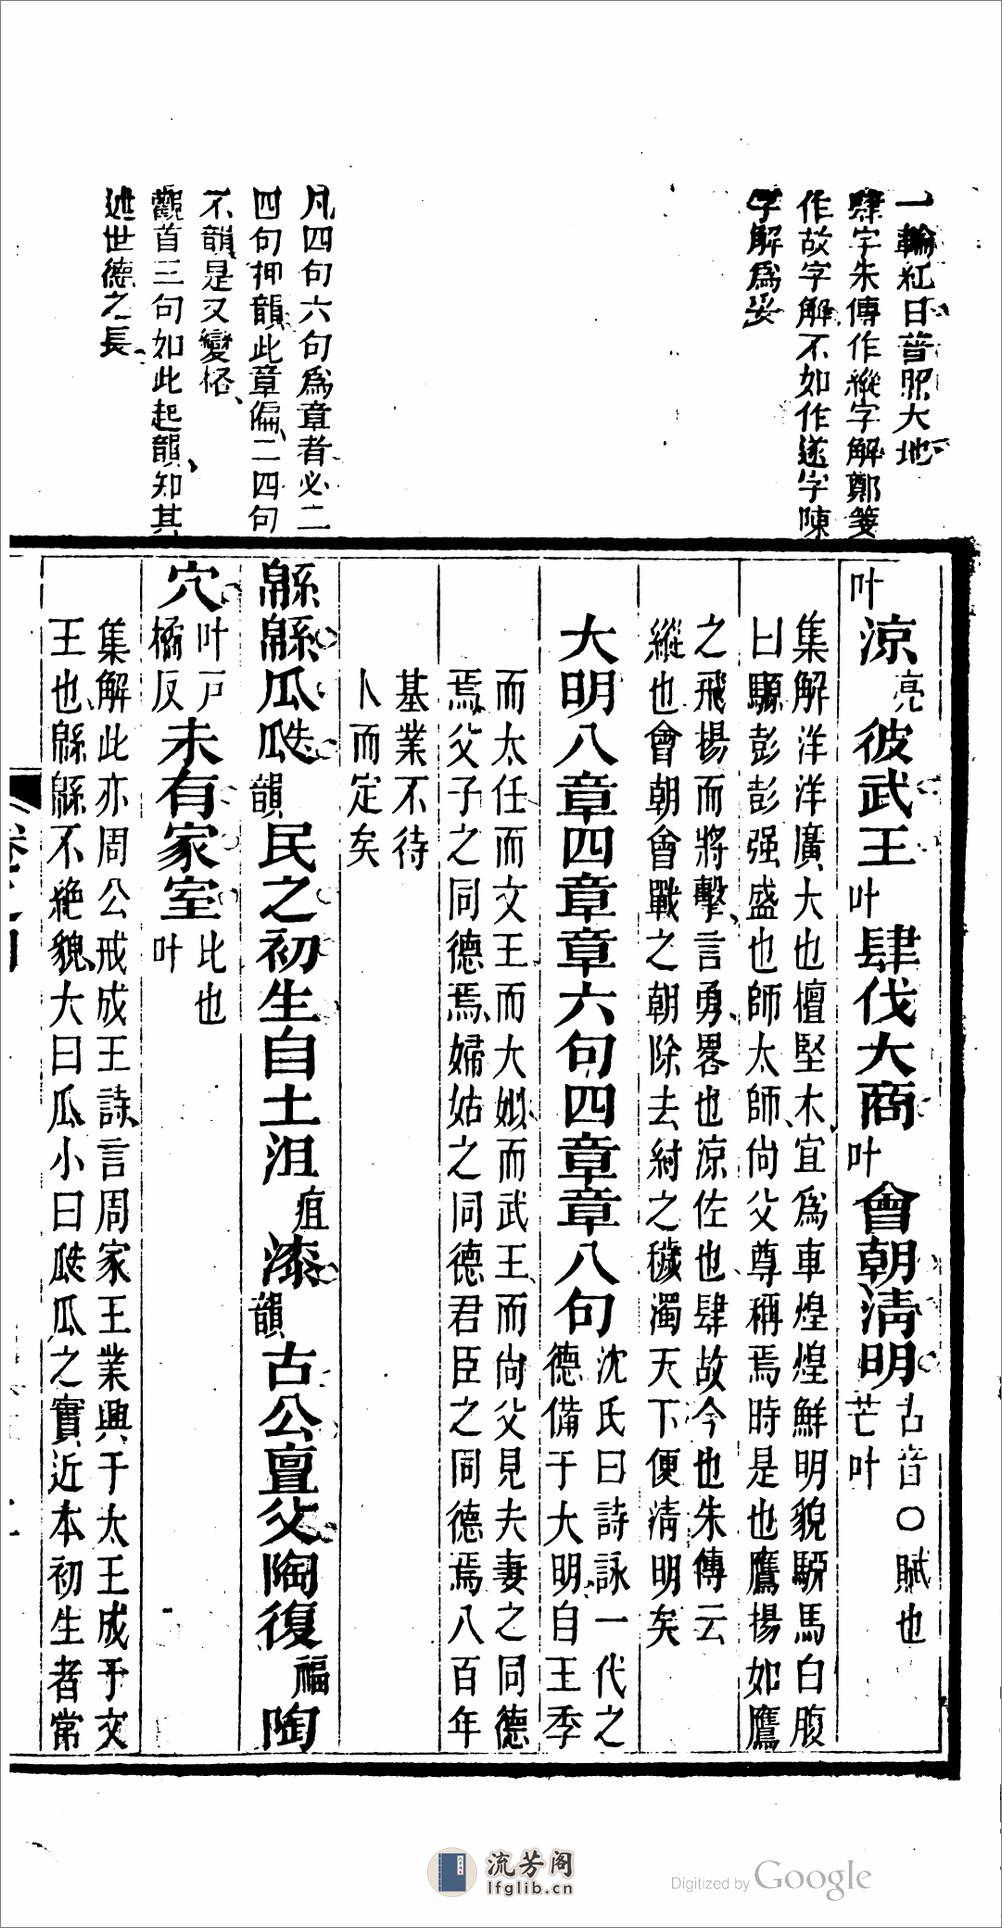 一輪紅日普照大地
肆字朱傳作縱字解鄭箋
作故字解不如作遂字陳
字解為妥
凡四句六句為章者必二
四句押韻此章偏二四句
不韻是又變格
觀首三句如此起韻知其
述世德之長
叶涼亮彼武王叶肆伐大商叶會朝清明古音芒叶○賦也
集解洋洋廣大也檀堅木宜為車煌煌鮮明貌駵馬白腹
曰騵彭彭强盛也師太師尚父尊稱焉時是也鷹揚如鷹
之飛揚而將擊言勇畧也涼佐也肆故今也朱傳云
縱也會朝會戰之朝除去紂之穢濁天下便清明矣
大明八章四章章六句四章章八句沈氏曰詩詠一代之
德備于大明自王季
而太任而文王而大姒而武王而尚父見夫妻之同德
焉父子之同德焉婦姑之同德君臣之同德焉八百年
基業不待
卜而定矣
緜緜瓜瓞韻民之初生自土沮疽漆韻古公亶父陶復福陶
穴叶戸橘反未有家室叶比也
集解此亦周公戒成王詩言周家王業興于太王成于文
王也緜緜不絶貌大曰瓜小曰瓞瓜之實近本初生者常
流芳阁
lfglib.cn
Digitized by Google